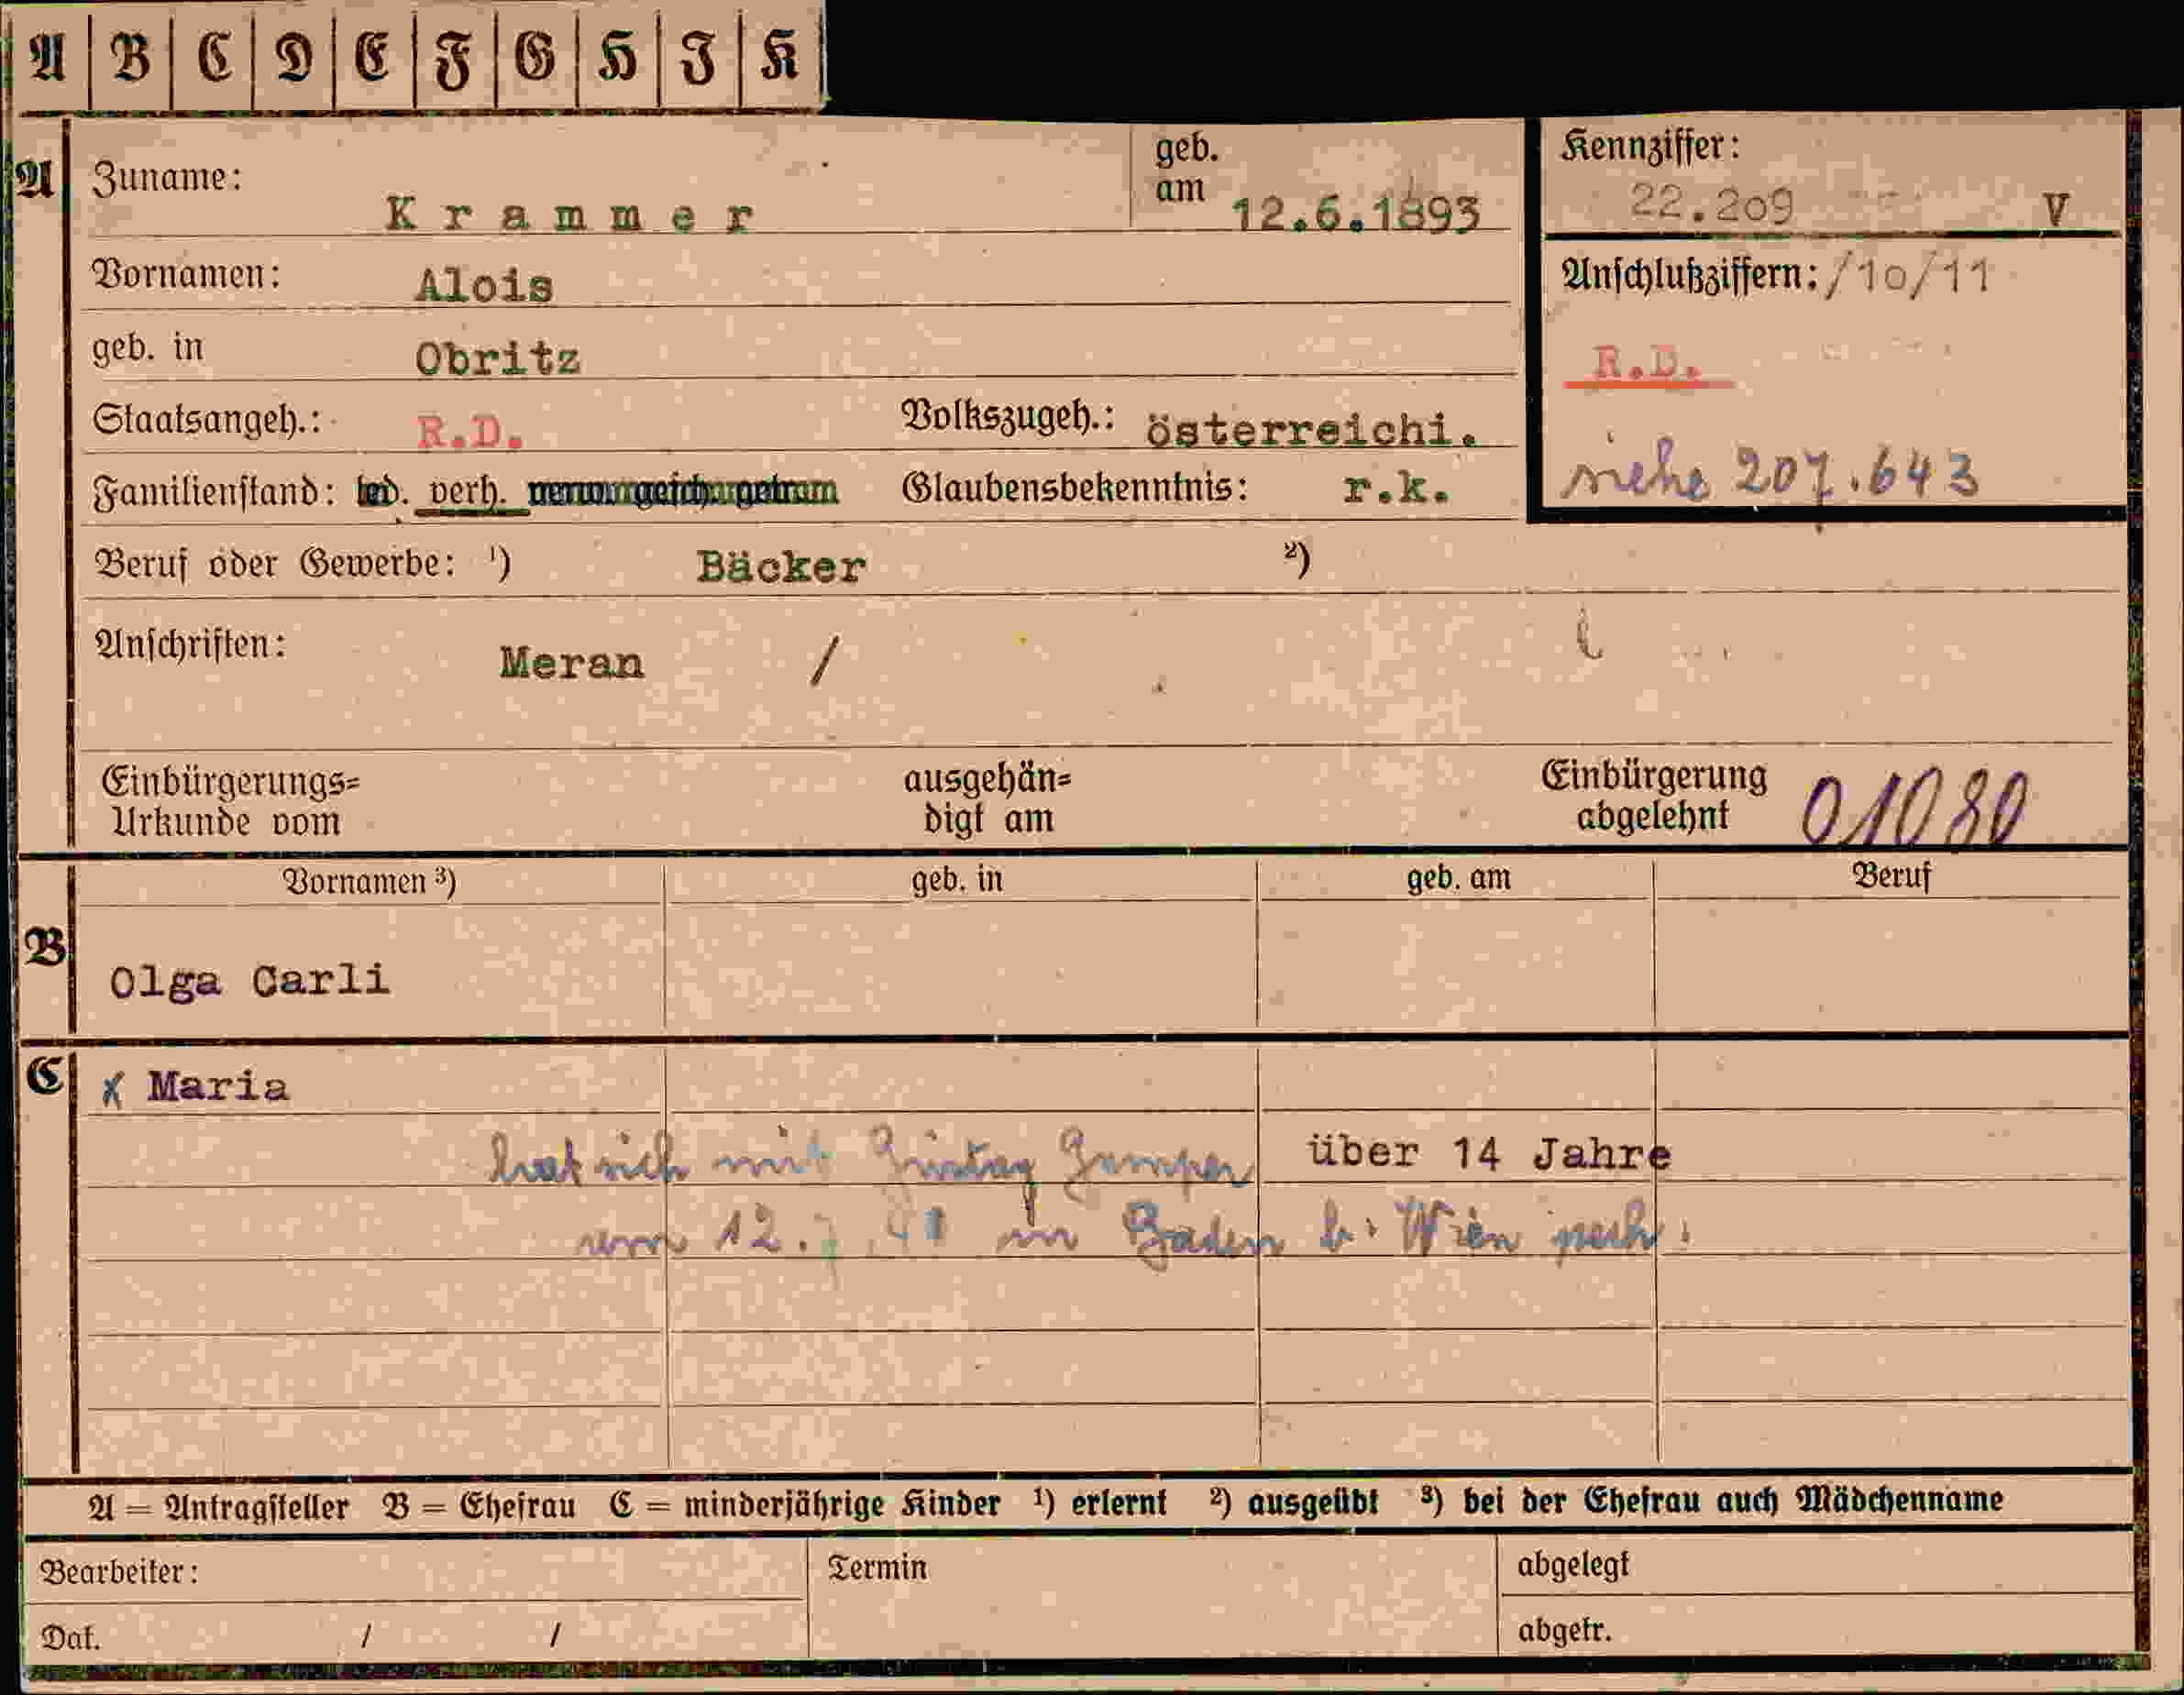 A B C D E F G H I K
A Zuname: Krammer geb. am 12.6.1893 Kennziffer: 22.209 V
Vornamen: Alois Anschlußziffern: /10/11
geb. in Obritz R.D.
Staatsangeh.: R.D. Volkszugeh.: österreichi.
Familienstand: led. verh. verw. gesch. getrennt Glaubensbekenntnis: r.k. siehe 207.643
Beruf oder Gewerbe: ¹) Bäcker ²)
Anschriften: Meran /
Einbürgerungs= ausgehän= Einbürgerung
Urkunde vom digt am abgelehnt 01080
Vornamen ³) geb. in geb. am Beruf
B Olga Carli
C x Maria
hat sich mit Gustav Gamper über 14 Jahre
am 12.7.41 in Baden b. Wien verh.
A = Antragsteller B = Ehefrau C = minderjährige Kinder ¹) erlernt ²) ausgeübt ³) bei der Ehefrau auch Mädchenname
Bearbeiter: Termin abgelegt
Dat. / / abgetr.